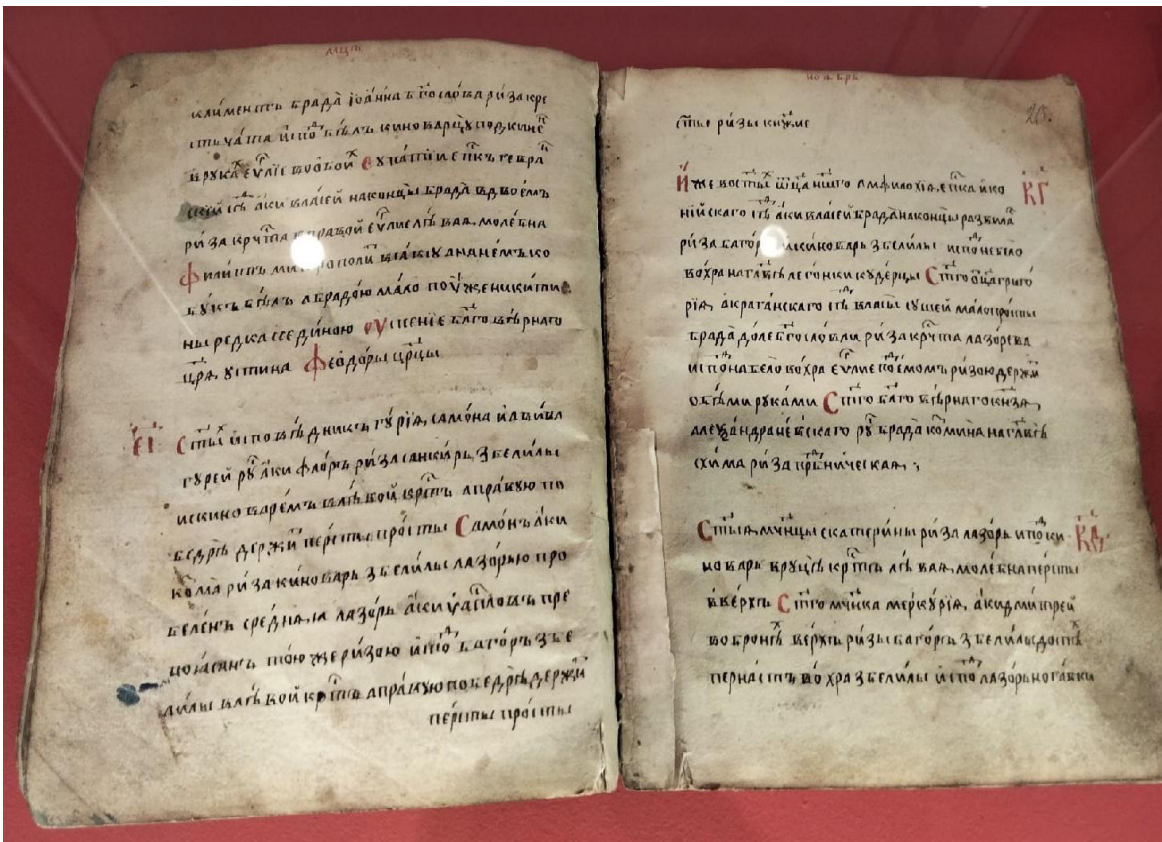 мцъ
климентъ брада іѡанна бг҃ослова риза кре
стьчата испо͗ бѣлъ киноварцу подкине͗
в рука͗ є҆ѵ҃лїе во ѻбои͗ Єупатїи єп҃пкъ гевра͗
скїй сѣ҃ аки власїей наконцы брада вдвоемъ
риза крч҃та в правой є҆ѵ҃лие лѣвая молебна
Филиппъ митрополи͗
букъ бѣлъ а брадою мало поуже никити
ны редка сединою ѹспение бл҃говѣрнаго
цр҃я устина Феѡдоры цр҃цы
е҃і Ст҃ы͗ исповѣдникъ гурїя, самона и авива
гурей ру҃ аки флоръ риза санкирь з белилы
ис киноваремъ в лѣвой крс҃тъ а правую по
бедрѣ держи͗ персты просты Самонъ аки
козма риза киноварь з белилы лазорью про
беленъ средняя лазорь аки
поясанъ тою же ризою испо͗ багоръ з бе
лилы в лѣвой крс҃тъ а правую по бедрѣ держи͗
персты просты
ноѧбрь
20.
ст҃ые ризы княжие
Иже во ст҃ы͗ ѿца нш҃го амфилохїя, еп҃пка ико к҃г
нїйскаго сѣ҃ аки власїей брада на концы развила͗
риза багоръ киноварь з белилы испо не бѣло
вохра на главѣ легонки кудерцы Ст҃го ѻц҃а григо
рїя, акраганскаго сѣ҃ власы сушей малопросты
брада доле бг҃ословли риза крч҃та лазорева
испо͗на бело вохра є҆ѵ҃лие по͗ емомъ ризою держи͗
обѣми руками Ст҃го бл҃говѣрнаго кн҃зя,
алеѯандра невскаго ру҃ брада комина на главѣ
схима риза прп҃бническая
Ст҃ыя мч҃нцы екатерины риза лазорь испо͗ ки к҃д
новарь в руцѣ крс҃тъ лѣвая молебна персты
вверхъ Ст҃го мч҃нка меркурїя, аки дмитрей
во бронѣ верхъ ризы багоръ з белилы доспѣ͗
пернастъ вохра з белилы испо͗ лазорь ногавки